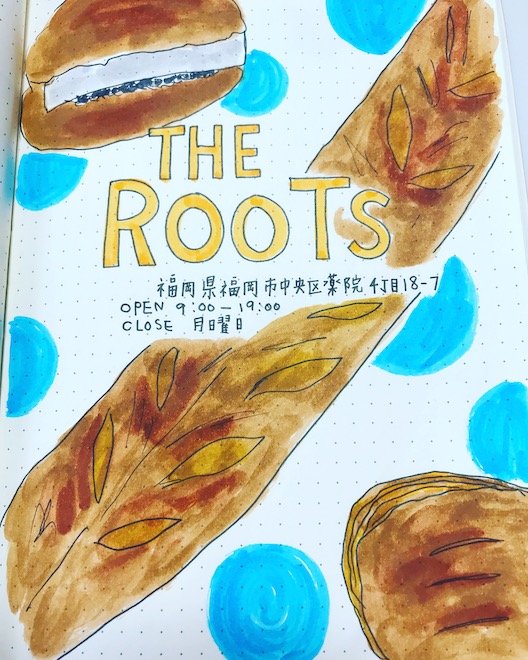 THE
ROOTS
福岡県福岡市中央区薬院4丁目18-7
OPEN 9:00-19:00
CLOSE 月曜日